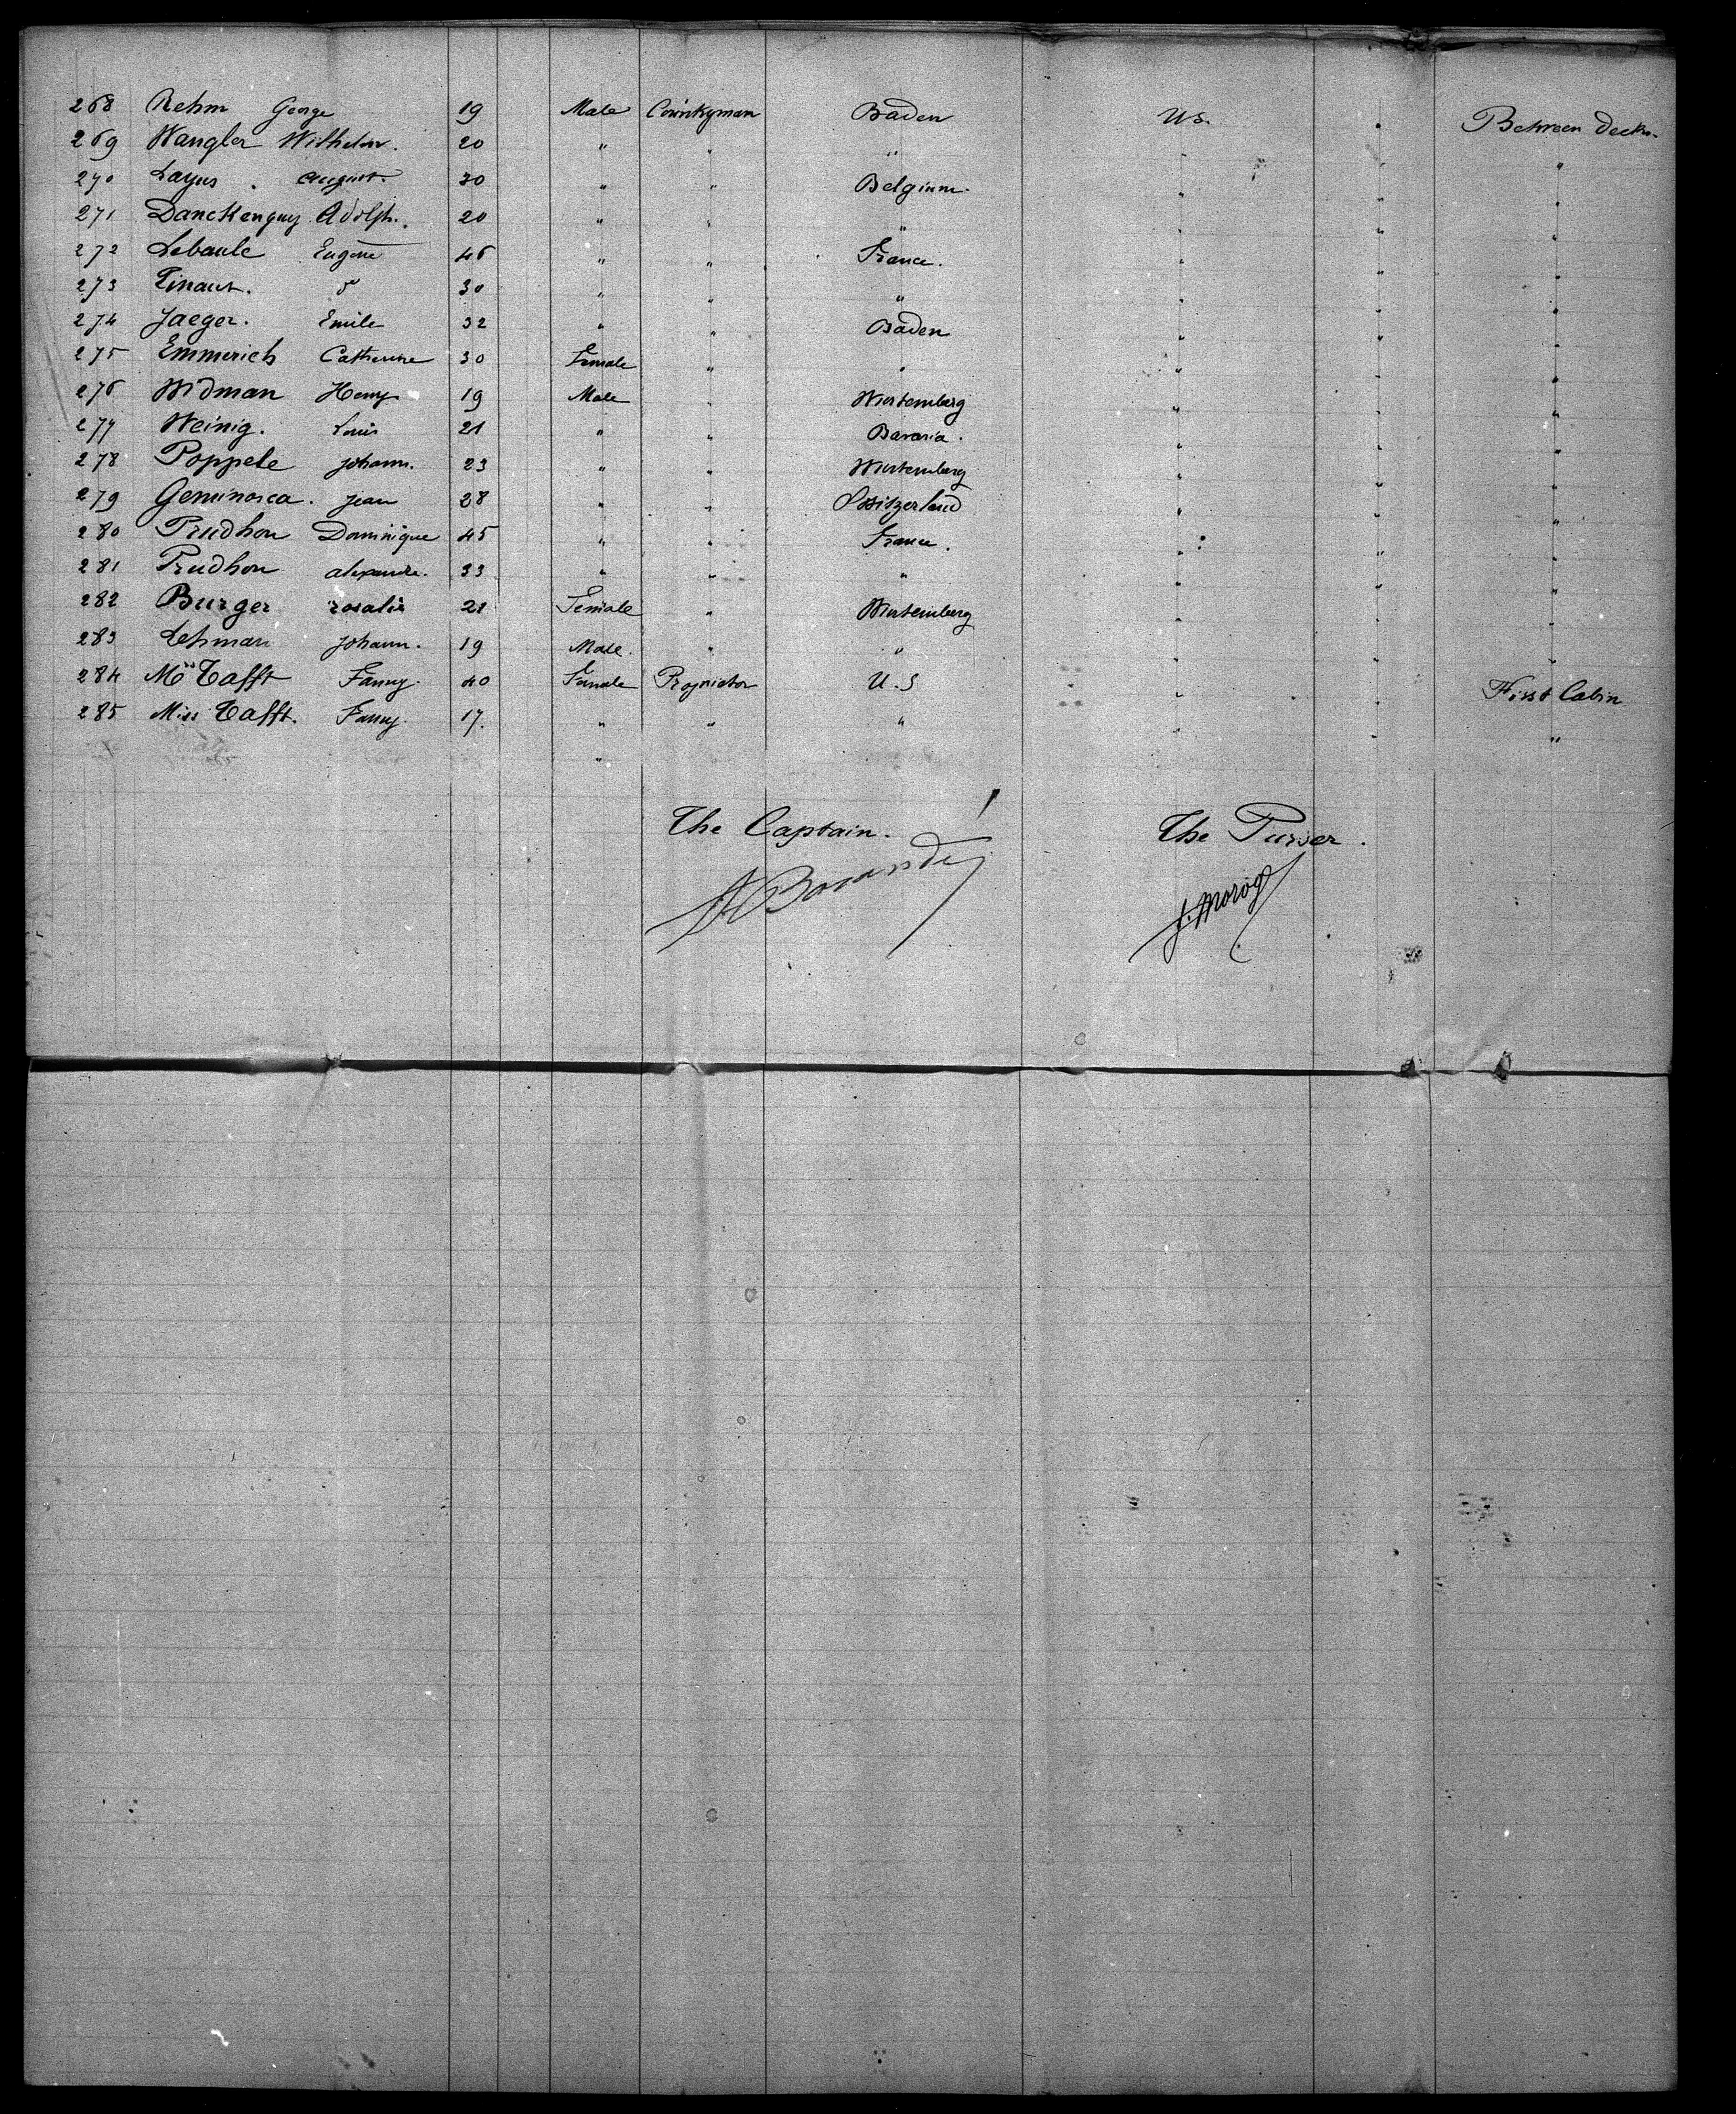 268 Rehm George 19 Male Countryman Baden U.S. " Between Decks.
269 Wangler Wilhelm. 20 " " " " " "
270 Layus. August. 30 " " Belgium. " " "
271 Danckenguy. Adolph. 20 " " " " " "
272 Lebaule Eugene 46 " " France. " " "
273 Tinant. d° 30 " " " " " "
274 Jaeger. Emile 32 " " Baden " " "
275 Emmerich Catherine 30 Female " " " " "
276 Widman Henry 19 Male " Wurtemberg " " "
277 Weinig. Louis 21 " " Bavaria. " " "
278 Poppele Johann. 23 " " Wurtemberg " " "
279 Geminosca. Jean 28 " " Switzerland " " "
280 Prudhon Dominique 45 " " France. " " "
281 Prudhon alexandre. 33 " " " " " "
282 Burger rosalie 21 Female " Wurtemberg " " "
283 Lehman Johann. 19 Male. " " " " "
284 Mrs Tafft Fanny. 40 Female Proprietor U.S " " First Cabin
285 Miss Tafft. Fanny. 17. " " " " " "
"
The Captain. The Purser.